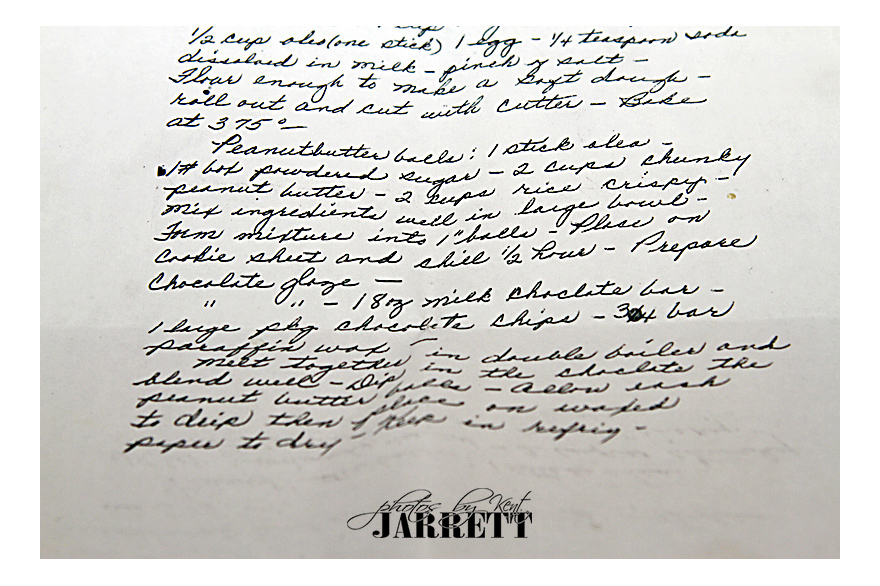 1/2 cup oleo (one stick) 1 egg - 1/4 teaspoon soda
dissolved in milk - pinch of salt -
Flour enough to make a soft dough -
roll out and cut with cutter - Bake
at 375° -
Peanutbutter balls: 1 stick oleo -
1# box powdered sugar - 2 cups chunky
peanut butter - 2 cups rice crispy -
Mix ingredients well in large bowl -
Form mixture into 1" balls - Place on
Cookie sheet and chill 1/2 hour - Prepare
Chocolate glaze -
" " - 1 8oz milk choclate bar -
1 large pkg chocolate chips - 3/4 bar
paraffin wax -
Melt together in double boiler and
blend well - Dip in the choclate the
peanut butter balls - allow each
to drip then place on waxed
paper to dry - Keep in refrig -
photos by Kent
JARRETT